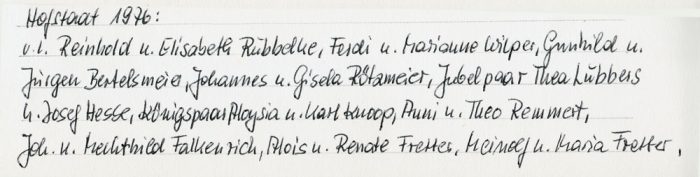 Hofstaat 1976:
v.l. Reinhold u. Elisabeth Rübbelke, Ferdi u. Marianne Wilper, Gunhild u.
Jürgen Bertelsmeier, Johannes u. Gisela Rötzmeier, Jubelpaar Thea Lübbers
u. Josef Hesse, Königspaar Aloysia u. Karl Knoop, Anni u. Theo Remmert,
Joh. u. Mechthild Falkenrich, Alois u. Renate Fretter, Meinolf u. Maria Fretter,